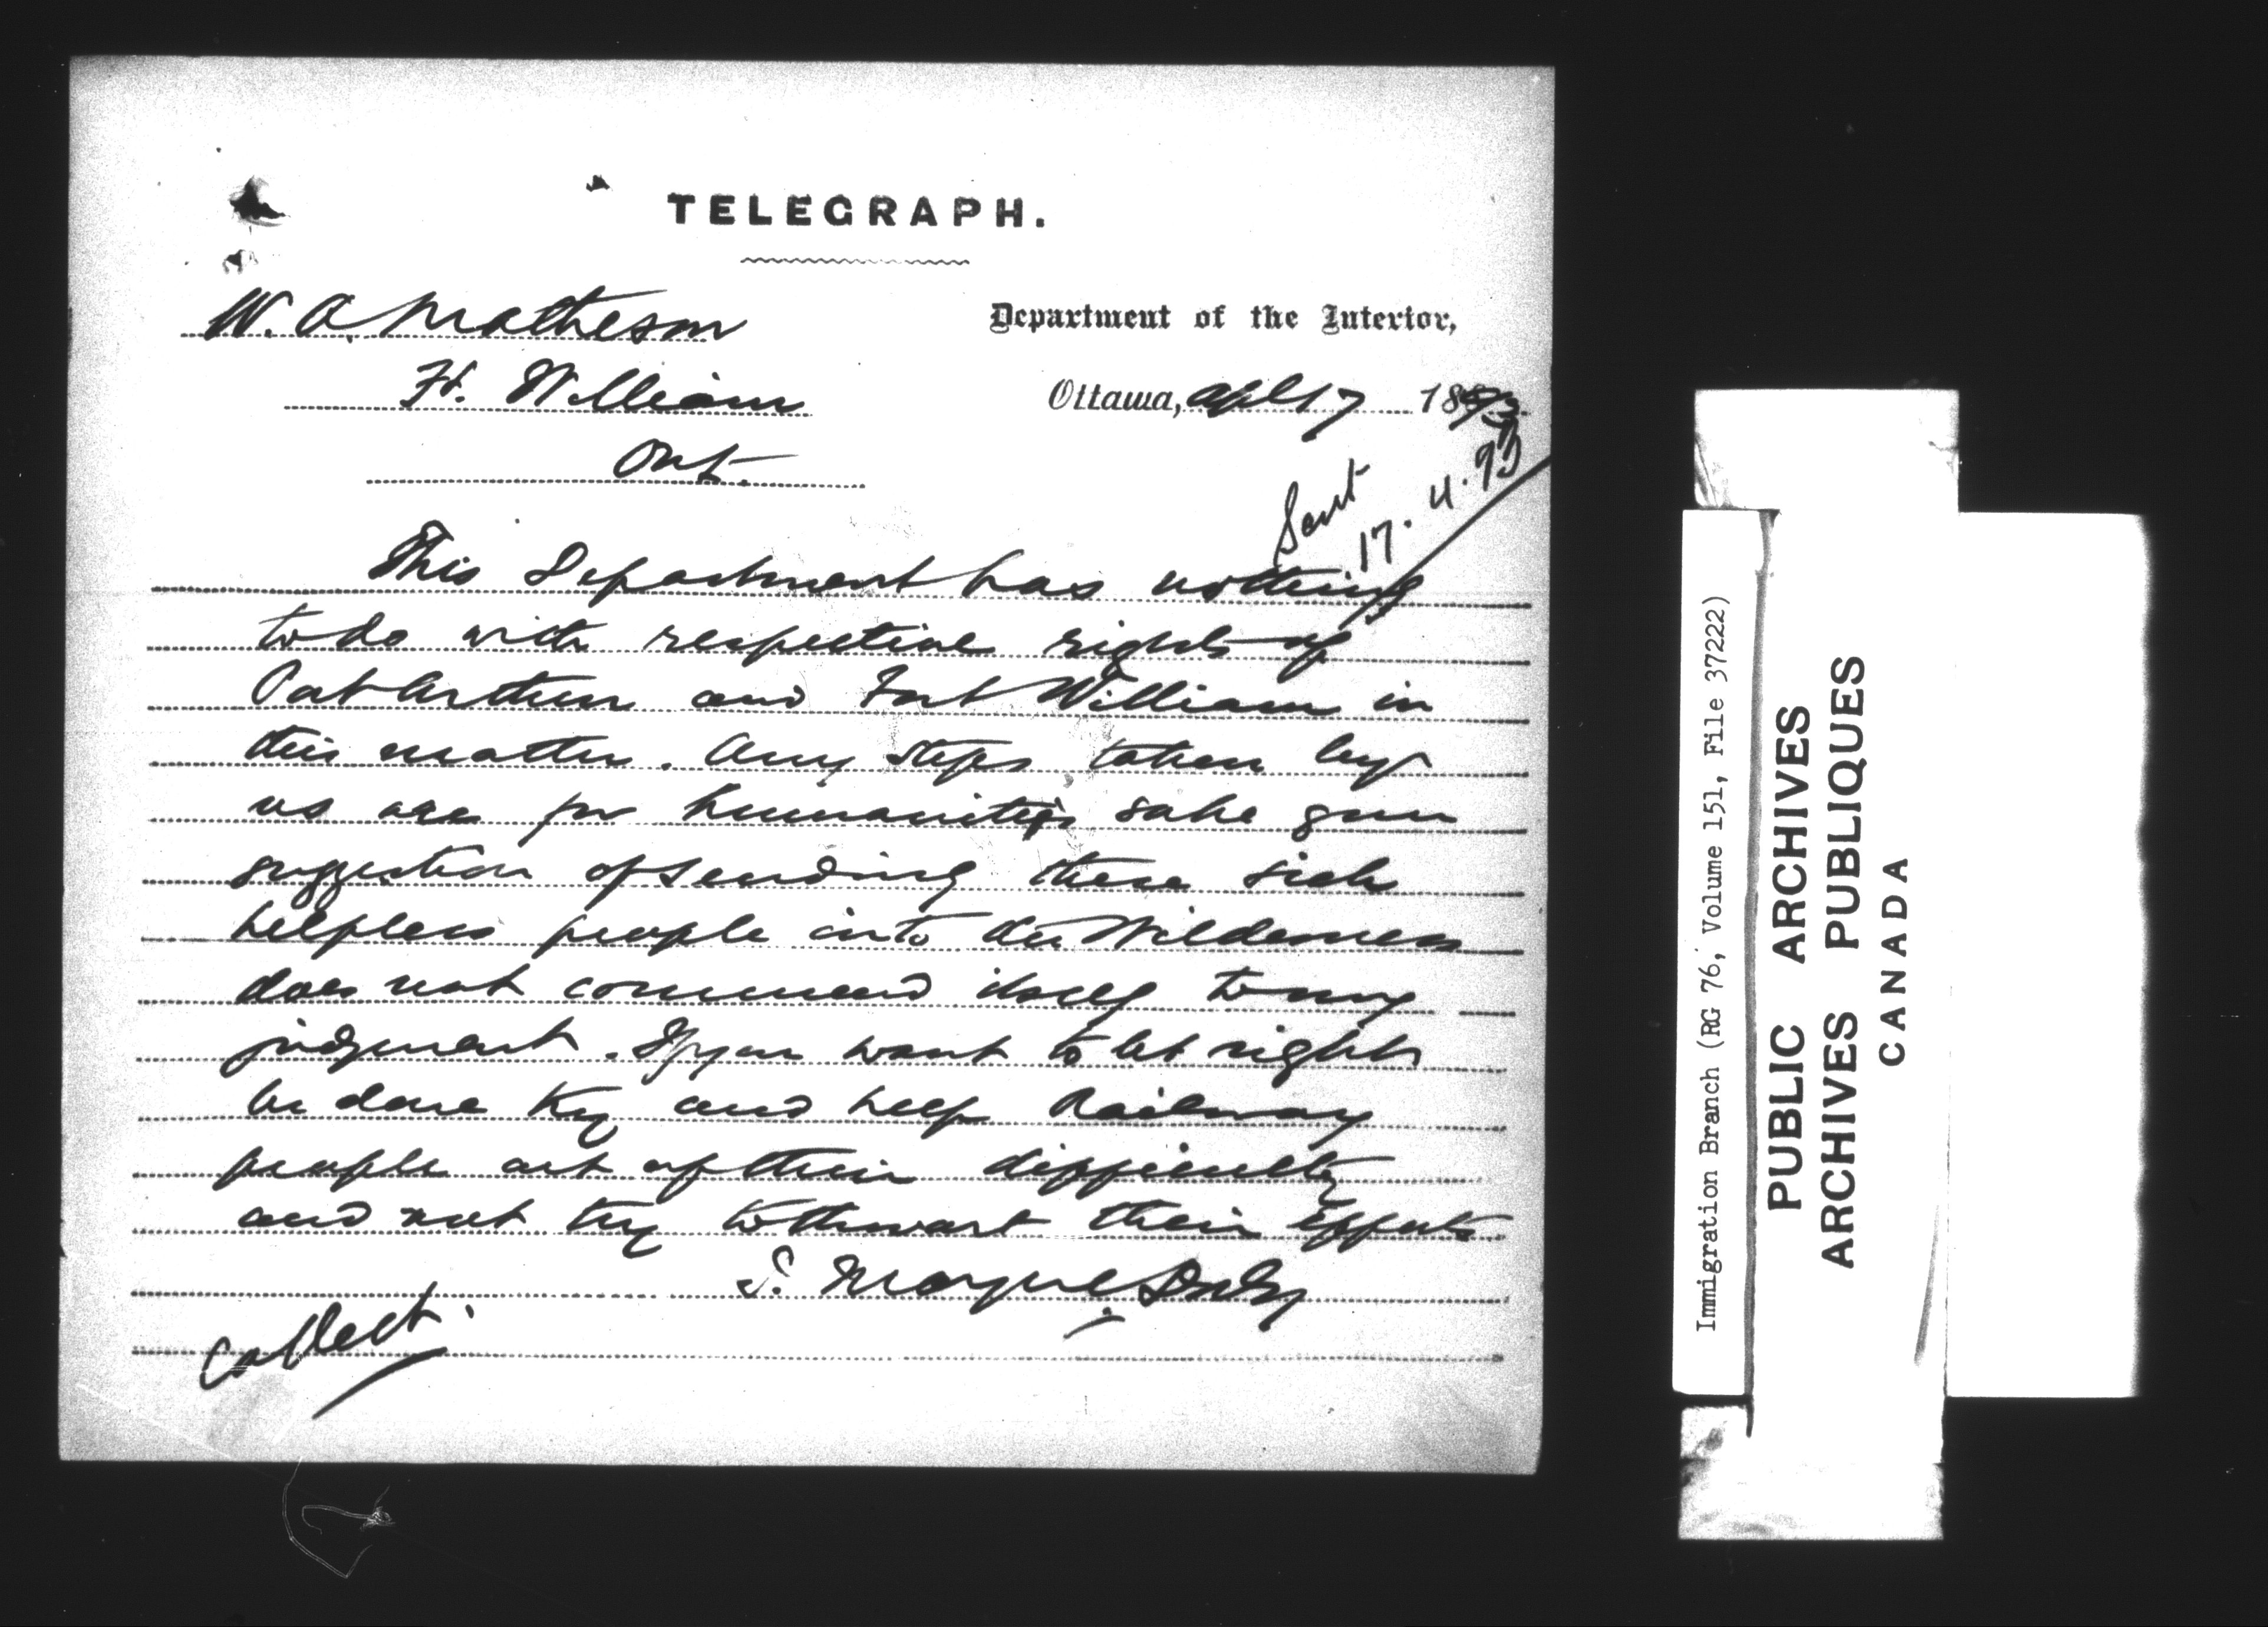 TELEGRAPH.
W. A. Matheson
Ft. William
Ont.
Department of the Interior,
Ottawa, Apl 17 1893.
Sent
17. 4. 93
This Department has nothing
to do with respective rights of
Port Arthur and Fort William in
this matter. Any steps taken by
us are for humanities sake your
suggestion of sending these sick
helpless people into the Wilderness
does not commend itself to my
judgment. If you want to let rights
be done try and help Railway
people out of their difficulty
and not try to thwart their efforts
T. Mayne Daly
Collect.
Immigration Branch (RG 76, Volume 151, File 37222)
PUBLIC ARCHIVES
ARCHIVES PUBLIQUES
CANADA